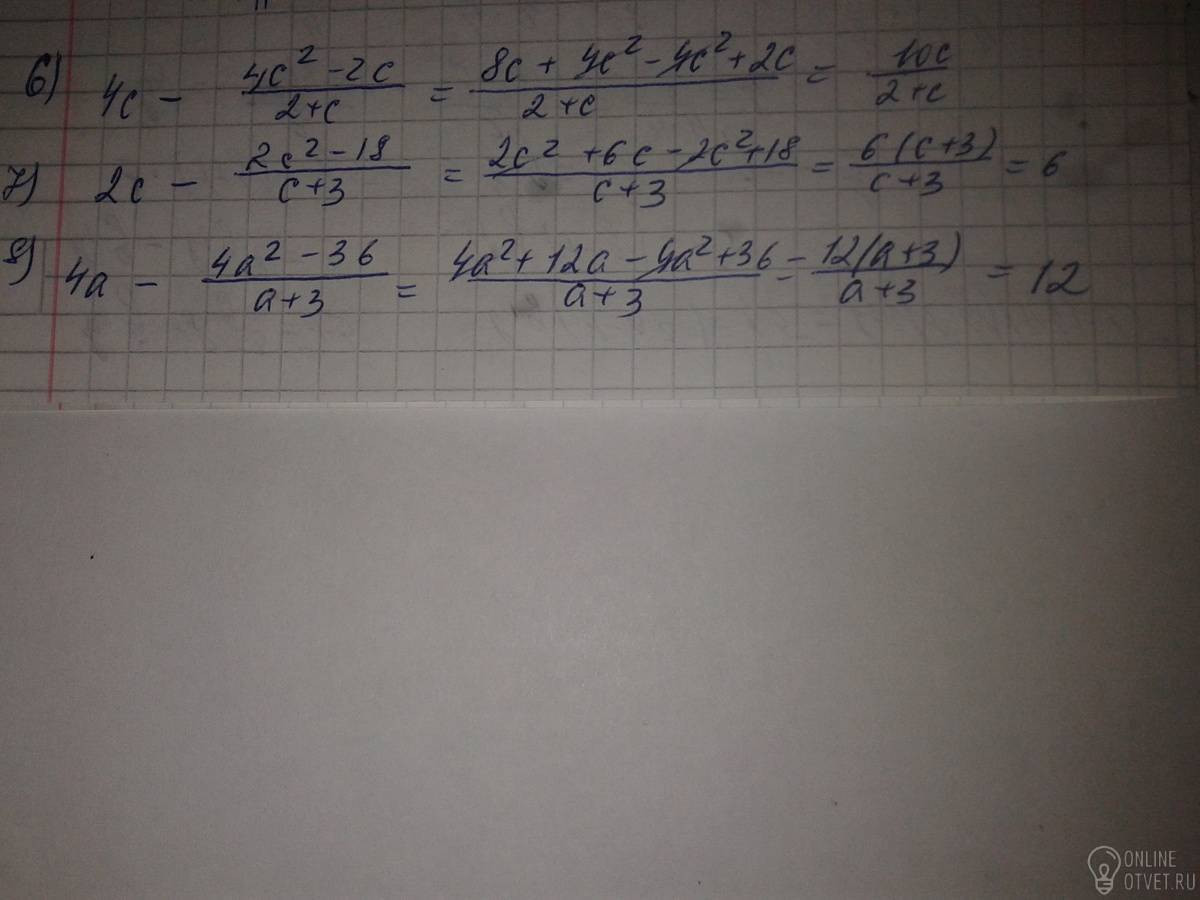 6) 4c - (4c² - 2c)/(2+c) = (8c + 4c² - 4c² + 2c)/(2+c) = 10c/(2+c)
7) 2c - (2c² - 18)/(c+3) = (2c² + 6c - 2c² + 18)/(c+3) = 6(c+3)/(c+3) = 6
8) 4a - (4a² - 36)/(a+3) = (4a² + 12a - 4a² + 36)/(a+3) = 12(a+3)/(a+3) = 12
ONLINE
OTVET.RU